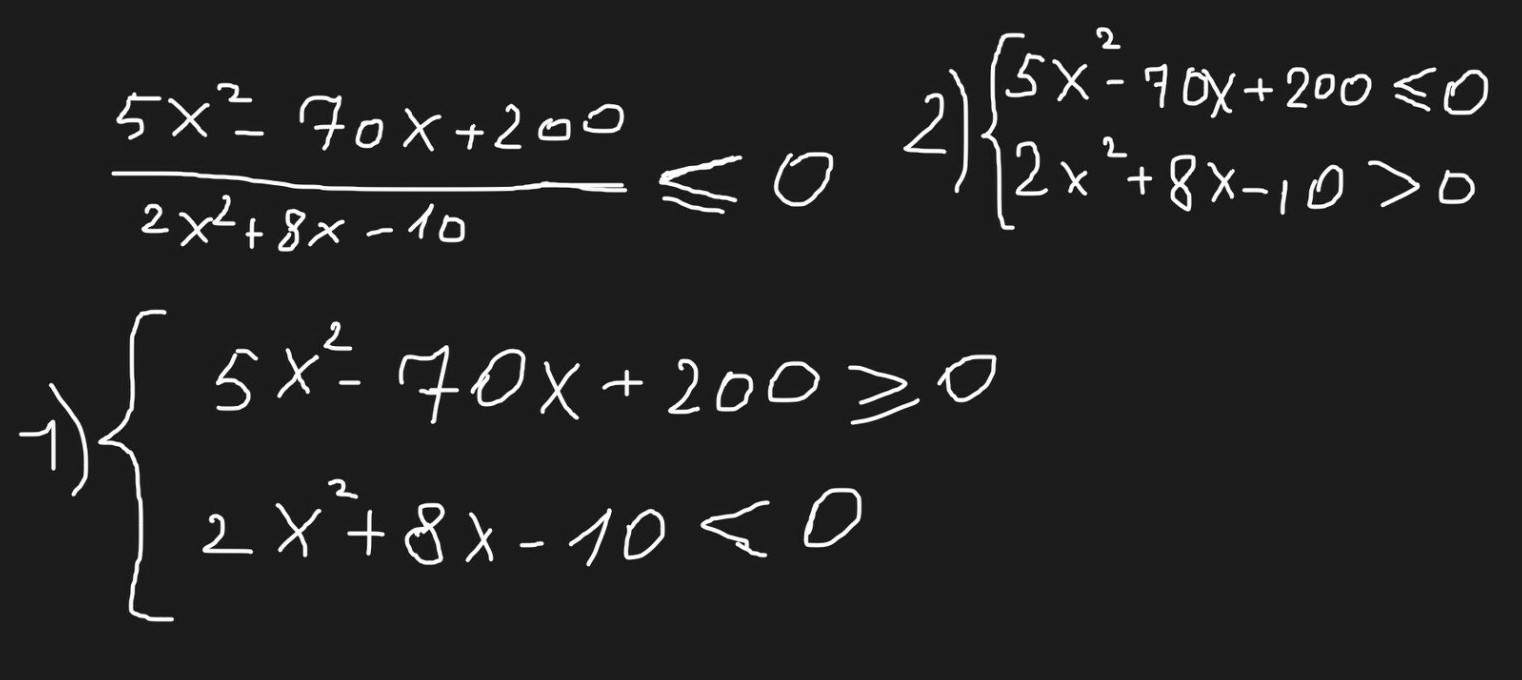 5x² - 70x + 200
───────────── ≤ 0
2x² + 8x - 10
2) { 5x² - 70x + 200 ≤ 0
2x² + 8x - 10 > 0
1) { 5x² - 70x + 200 ≥ 0
2x² + 8x - 10 < 0